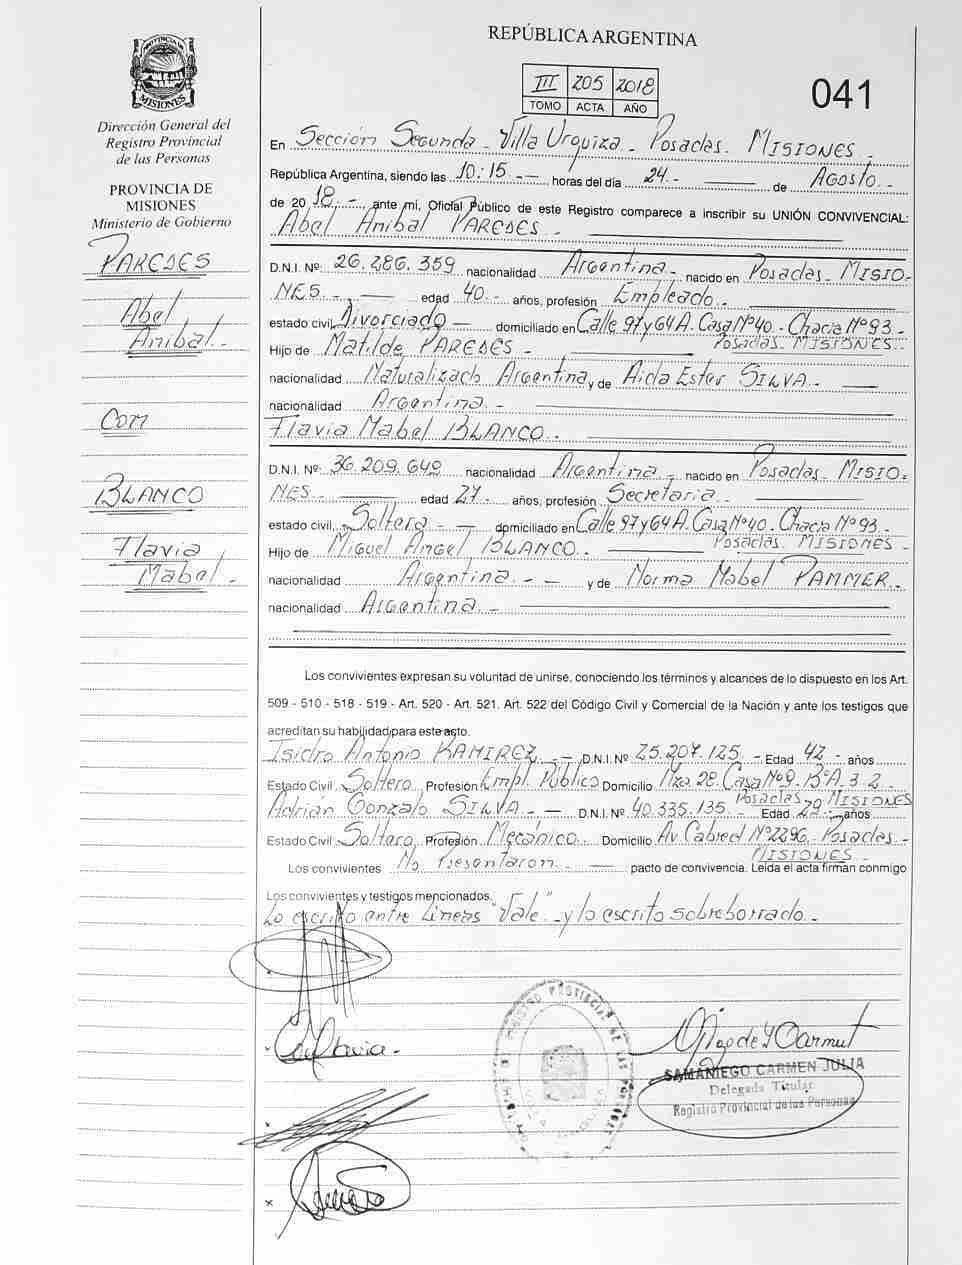 REPÚBLICA ARGENTINA
PROVINCIA DE
MISIONES
III 205 2018
TOMO ACTA AÑO
041
Dirección General del
Registro Provincial
de las Personas
PROVINCIA DE
MISIONES
Ministerio de Gobierno
PAREDES
Abel
Anibal.-
Con
BLANCO
Flavia
Mabel.-
En Sección Segunda - Villa Urquiza - Posadas. MISIONES.-
República Argentina, siendo las 10:15.- horas del día 24.- de Agosto.-
de 2018.- ante mí, Oficial Público de este Registro comparece a inscribir su UNIÓN CONVIVENCIAL:
Abel Anibal PAREDES.-
D.N.I. Nº 26.286.359 nacionalidad Argentina.- nacido en Posadas. MISIO-
NES.- edad 40.- años, profesión Empleado.-
estado civil Divorciado - domiciliado en Calle 97 y 64 A. Casa Nº 40.- Chacra Nº 93.-
Posadas. MISIONES.-
Hijo de Matilde PAREDES.-
nacionalidad Argentina, y de Aida Ester SILVA.-
nacionalidad Argentina.-
Flavia Mabel BLANCO.-
D.N.I. Nº 36.209.649 nacionalidad Argentina.- nacido en Posadas. MISIO-
NES.- edad 27.- años, profesión Secretaria.-
estado civil Soltera.- domiciliado en Calle 97 y 64 A. Casa Nº 40.- Chacra Nº 93.-
Posadas. MISIONES.-
Hijo de Miguel Angel BLANCO.-
nacionalidad Argentina.- - y de Norma Mabel PAMMER.-
nacionalidad Argentina.-
Los convivientes expresan su voluntad de unirse, conociendo los términos y alcances de lo dispuesto en los Art.
509 - 510 - 518 - 519 - Art. 520 - Art. 521. Art. 522 del Código Civil y Comercial de la Nación y ante los testigos que
acreditan su habilidad para este acto.
Isidro Antonio RAMIREZ.- D.N.I. Nº 25.207.125.- Edad 42.- años
Estado Civil Soltero. Profesión Empl. Público Domicilio Mza. 28. Casa Nº 9. Bº A. 3-2.
Posadas MISIONES
Adrian Gonzalo SILVA.- D.N.I. Nº 40.335.135. Edad años
Estado Civil Soltero. Profesión Mecánico. Domicilio Av. Cabred Nº 2296. Posadas.-
MISIONES.-
Los convivientes No Presentaron.- pacto de convivencia. Leída el acta firman conmigo
Los convivientes y testigos mencionados.
Lo escrito entre Lineas "Vale".- y lo escrito sobreborrado.-
SAMANIEGO CARMEN JULIA
Delegada Titular
Registro Provincial de las Personas